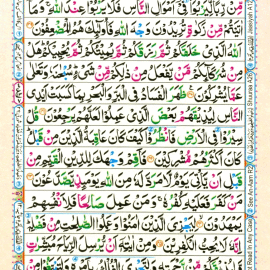 مِّنْ رِّبًا لِّيَرْبُوَا۠ فِيْٓ اَمْوَالِ النَّاسِ فَلَا يَرْبُوْا عِنْدَ اللّٰهِ ۚ وَمَآ
اٰتَيْتُمْ مِّنْ زَكٰوةٍ تُرِيْدُوْنَ وَجْهَ اللّٰهِ فَاُولٰٓئِكَ هُمُ الْمُضْعِفُوْنَ
اَللّٰهُ الَّذِيْ خَلَقَكُمْ ثُمَّ رَزَقَكُمْ ثُمَّ يُمِيْتُكُمْ ثُمَّ يُحْيِيْكُمْ ۭ هَلْ
مِنْ شُرَكَآئِكُمْ مَّنْ يَّفْعَلُ مِنْ ذٰلِكُمْ مِّنْ شَيْءٍ ۭ سُبْحٰنَهٗ وَتَعٰلٰى
عَمَّا يُشْرِكُوْنَ ظَهَرَ الْفَسَادُ فِي الْبَرِّ وَالْبَحْرِ بِمَا كَسَبَتْ اَيْدِي
النَّاسِ لِيُذِيْقَهُمْ بَعْضَ الَّذِيْ عَمِلُوْا لَعَلَّهُمْ يَرْجِعُوْنَ قُلْ
سِيْرُوْا فِي الْاَرْضِ فَانْظُرُوْا كَيْفَ كَانَ عَاقِبَةُ الَّذِيْنَ مِنْ قَبْلُ ۭ
كَانَ اَكْثَرُهُمْ مُّشْرِكِيْنَ فَاَقِمْ وَجْهَكَ لِلدِّيْنِ الْقَيِّمِ مِنْ
قَبْلِ اَنْ يَّاْتِيَ يَوْمٌ لَّا مَرَدَّ لَهٗ مِنَ اللّٰهِ يَوْمَئِذٍ يَّصَّدَّعُوْنَ
مَنْ كَفَرَ فَعَلَيْهِ كُفْرُهٗ ۚ وَمَنْ عَمِلَ صَالِحًا فَلِاَنْفُسِهِمْ
يَمْهَدُوْنَ لِيَجْزِيَ الَّذِيْنَ اٰمَنُوْا وَعَمِلُوا الصّٰلِحٰتِ مِنْ فَضْلِهٖ ۭ
اِنَّهٗ لَا يُحِبُّ الْكٰفِرِيْنَ وَمِنْ اٰيٰتِهٖٓ اَنْ يُّرْسِلَ الرِّيَاحَ مُبَشِّرٰتٍ